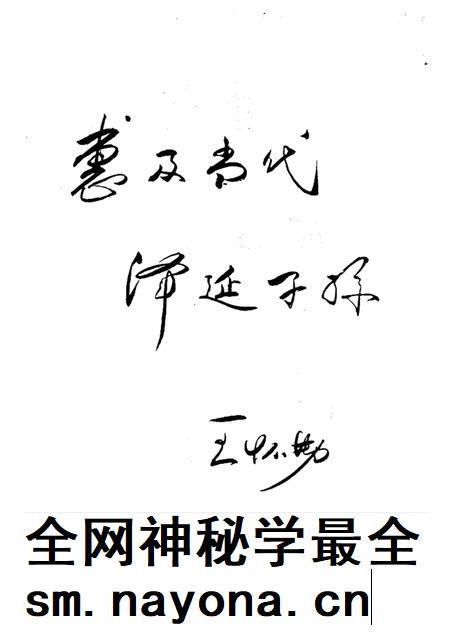 惠及当代
泽延子孙
王怀勤
全网神秘学最全
sm.nayona.cn